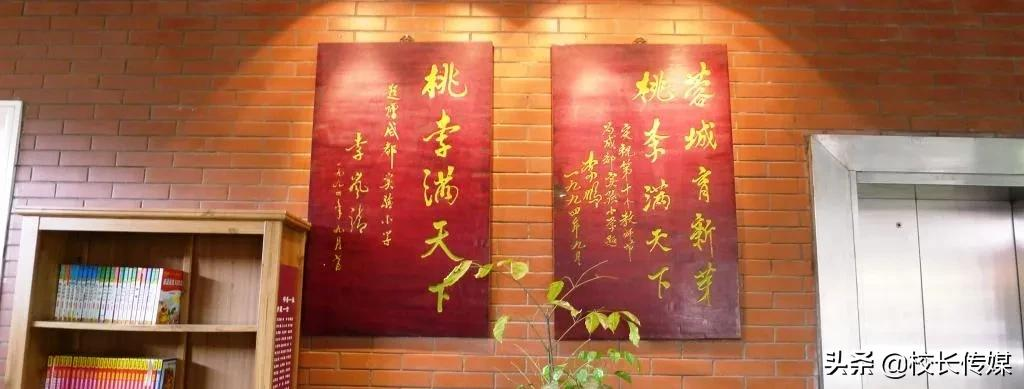 桃李满天下
题赠成都实验小学
李岚清
一九九四年九月
蓉城育新芽
桃李满天下
庆祝第十个教师节
为成都实验小学题
李鹏
一九九四年九月
头条 @校长传媒